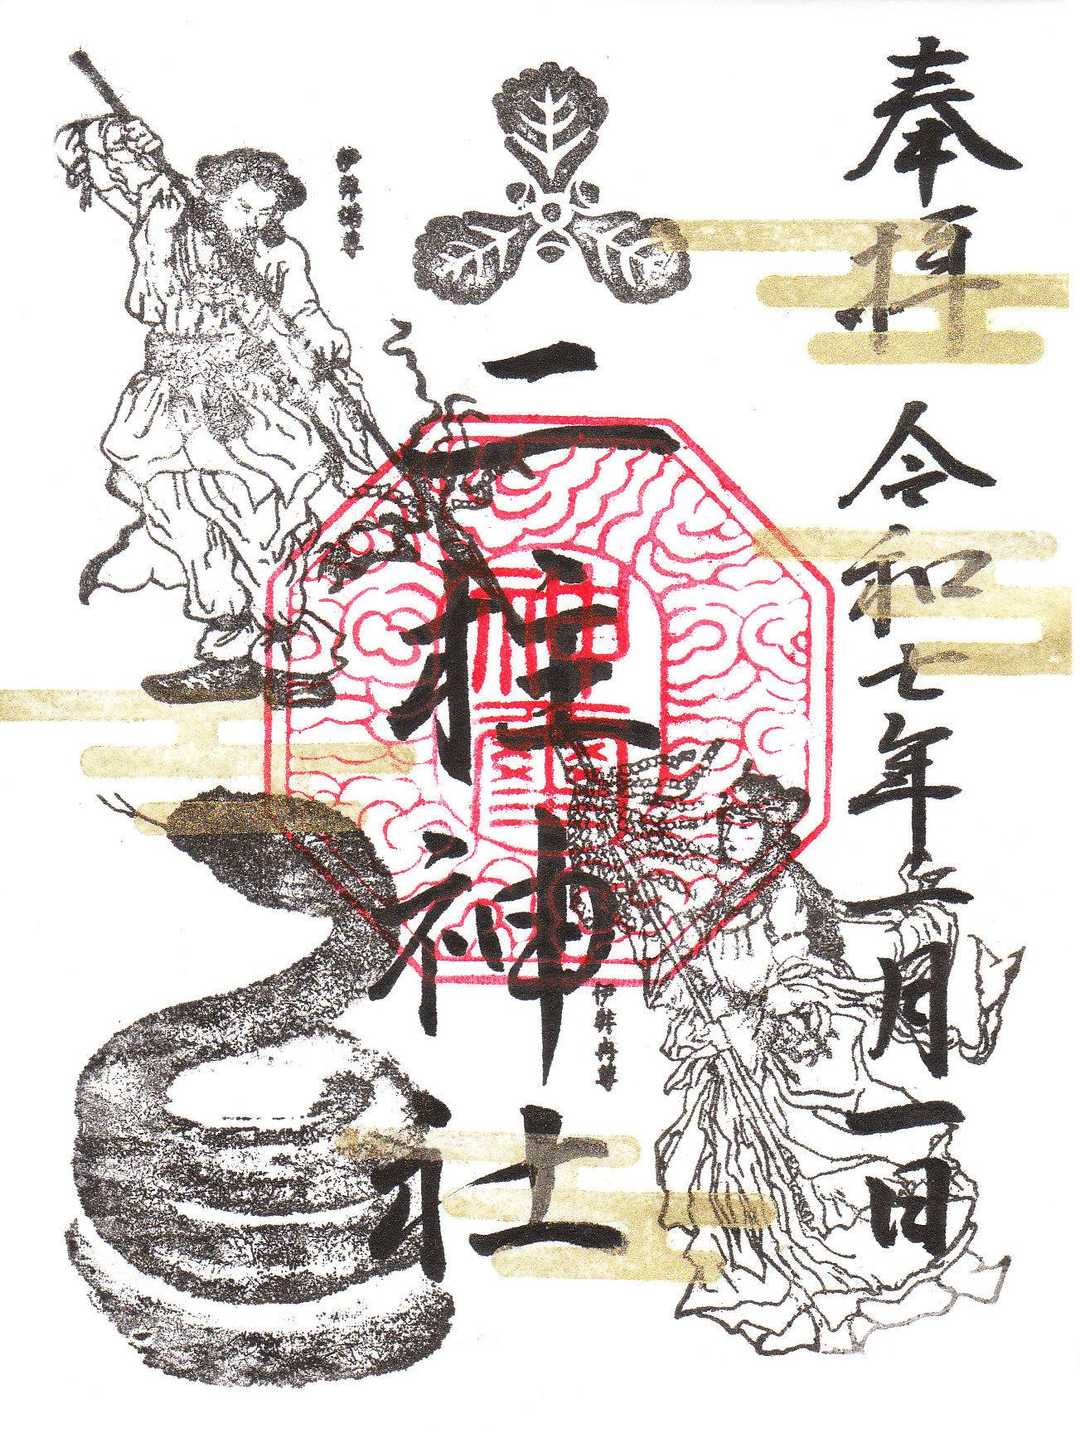 奉拝
令和七年二月一日
二柱神社
伊弉諾尊
伊弉冉尊